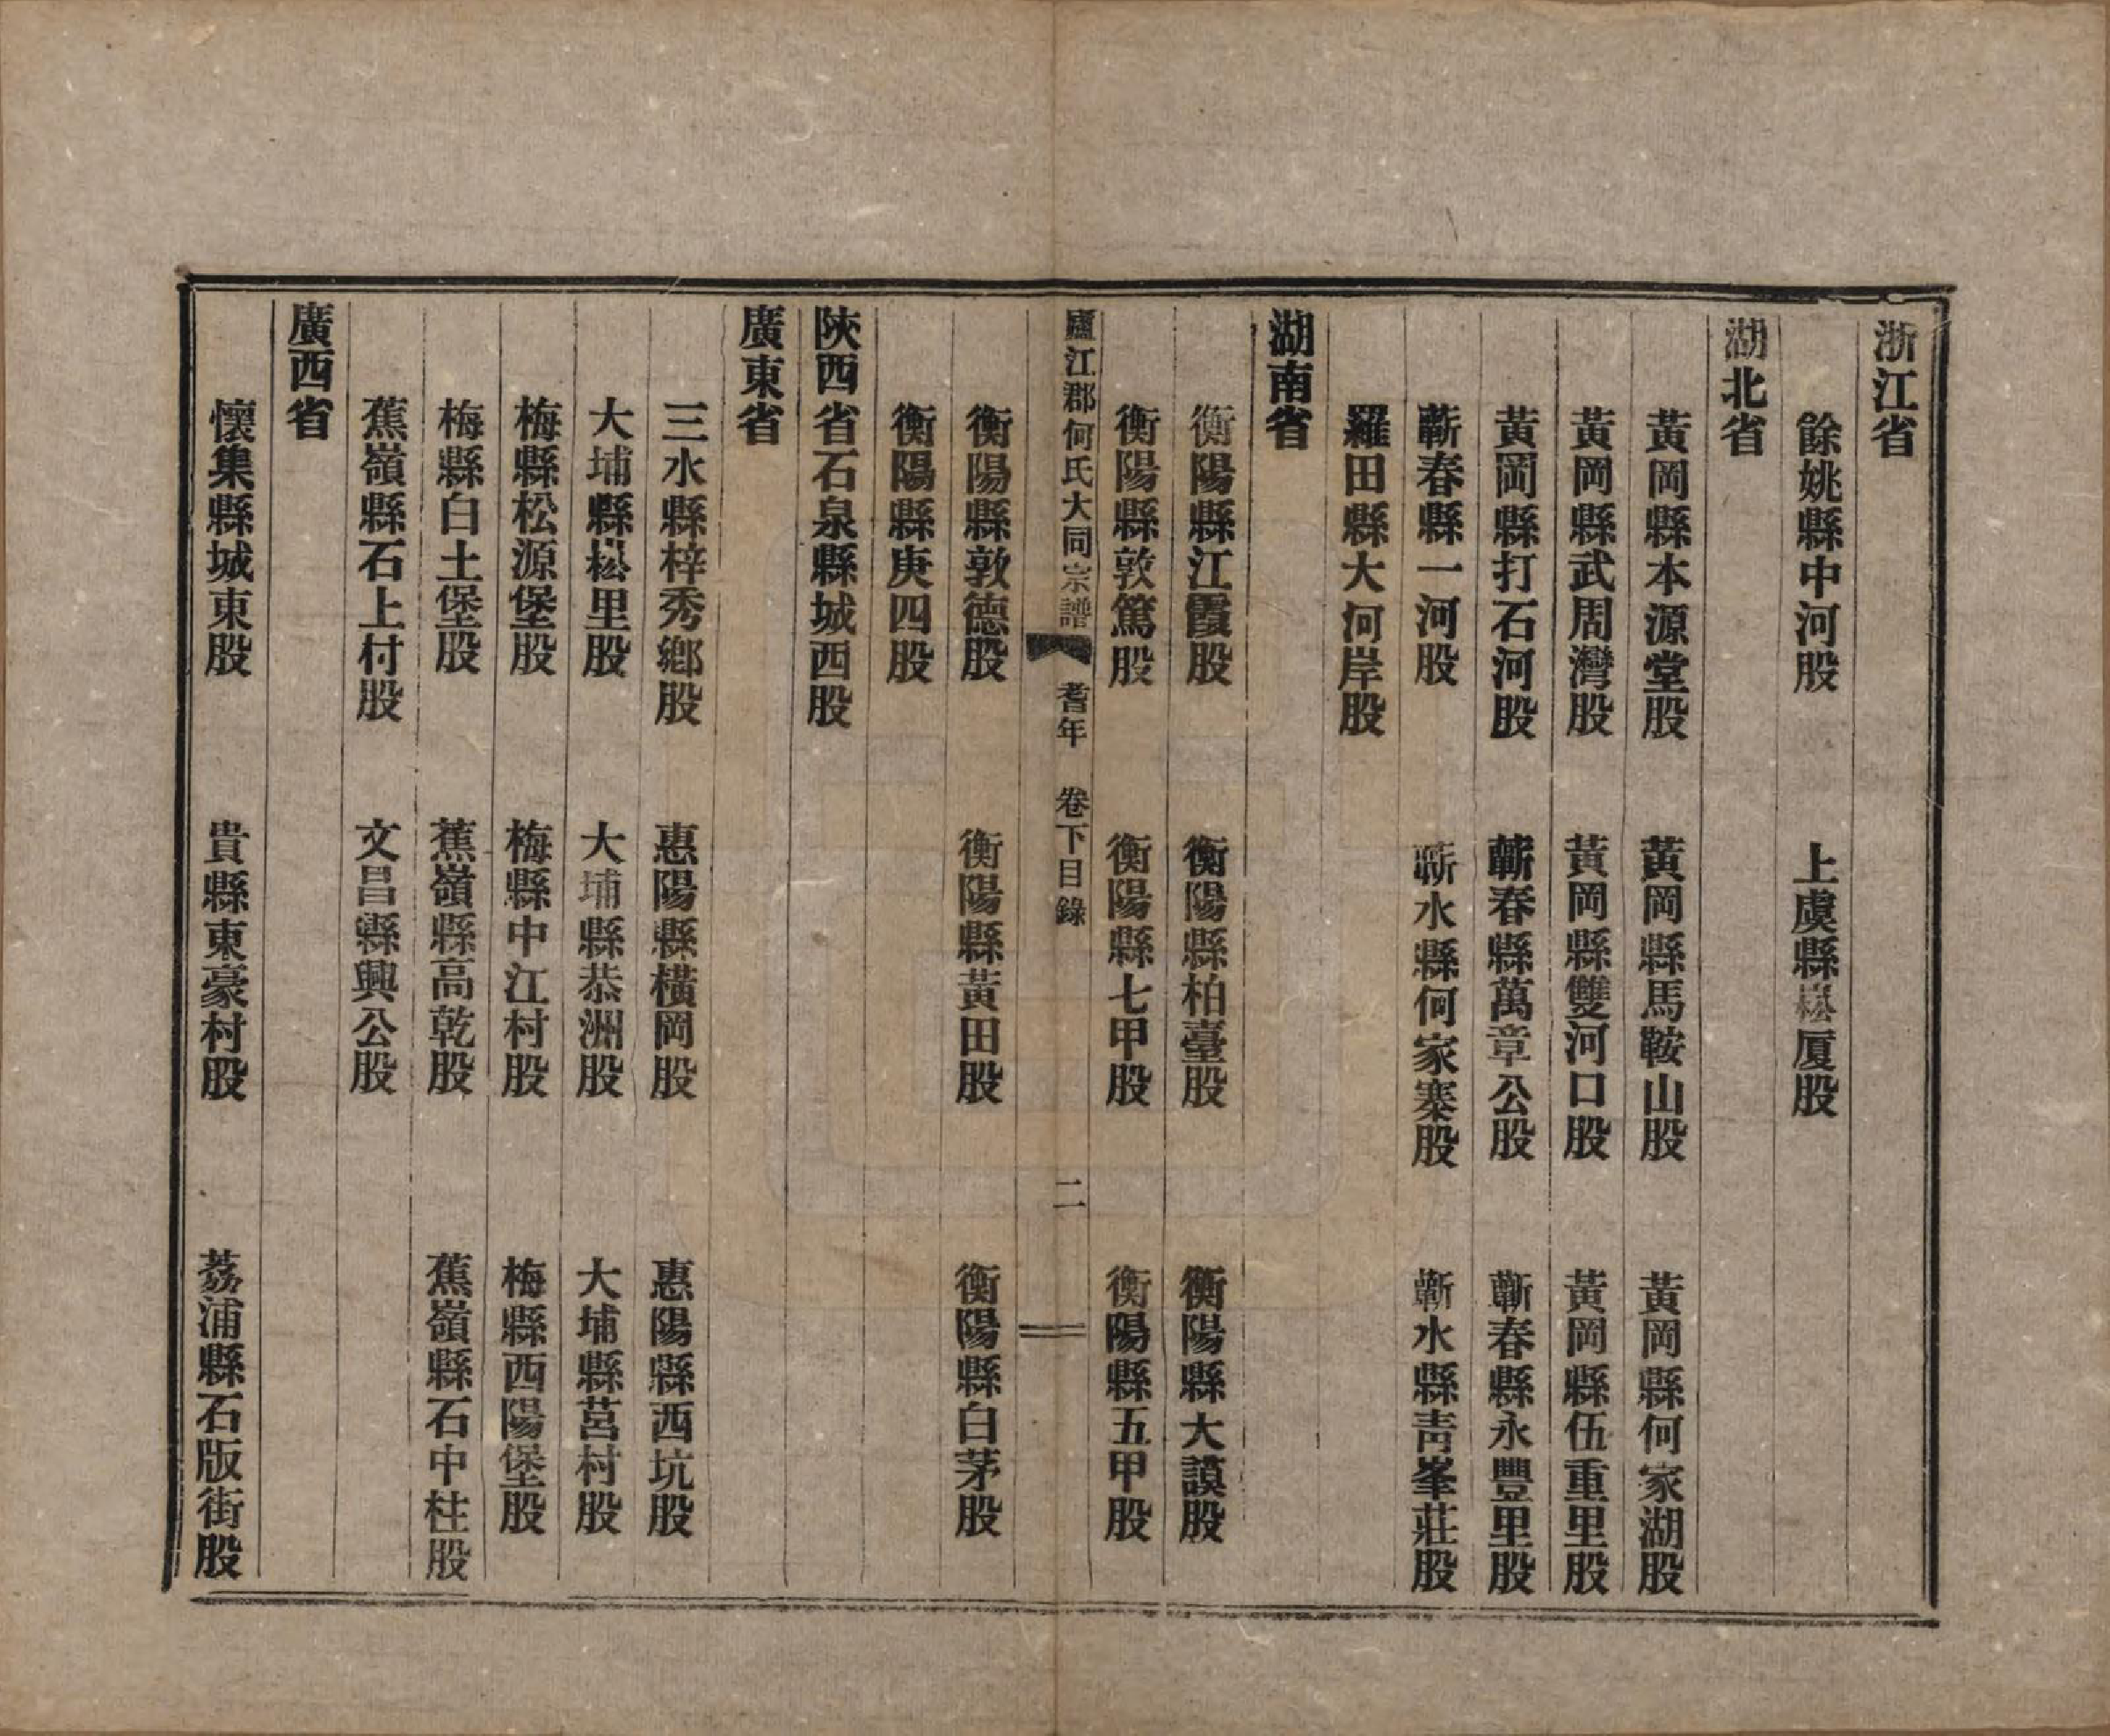 浙江省
餘姚縣中河股　上虞縣崧厦股
湖北省
黃岡縣本源堂股　黃岡縣馬鞍山股　黃岡縣何家湖股
黃岡縣武周灣股　黃岡縣雙河口股　黃岡縣伍重里股
黃岡縣打石河股　蘄春縣萬章公股　蘄春縣永豐里股
蘄春縣一河股　蘄水縣何家寨股　蘄水縣靑峯莊股
羅田縣大河岸股
湖南省
衡陽縣江霞股　衡陽縣柏臺股　衡陽縣大謨股
衡陽縣敦篤股　衡陽縣七甲股　衡陽縣五甲股
廬江郡何氏大同宗譜　耆年　卷下目錄　二
衡陽縣敦德股　衡陽縣黃田股　衡陽縣白茅股
衡陽縣庚四股
陝西省石泉縣城西股
廣東省
三水縣梓秀鄉股　惠陽縣橫岡股　惠陽縣西坑股
大埔縣崧里股　大埔縣恭洲股　大埔縣莒村股
梅縣松源堡股　梅縣中江村股　梅縣西陽堡股
梅縣白土堡股　蕉嶺縣高乾股　蕉嶺縣石中柱股
蕉嶺縣石上村股　文昌縣興公股
廣西省
懷集縣城東股　貴縣東豪村股　荔浦縣石版街股